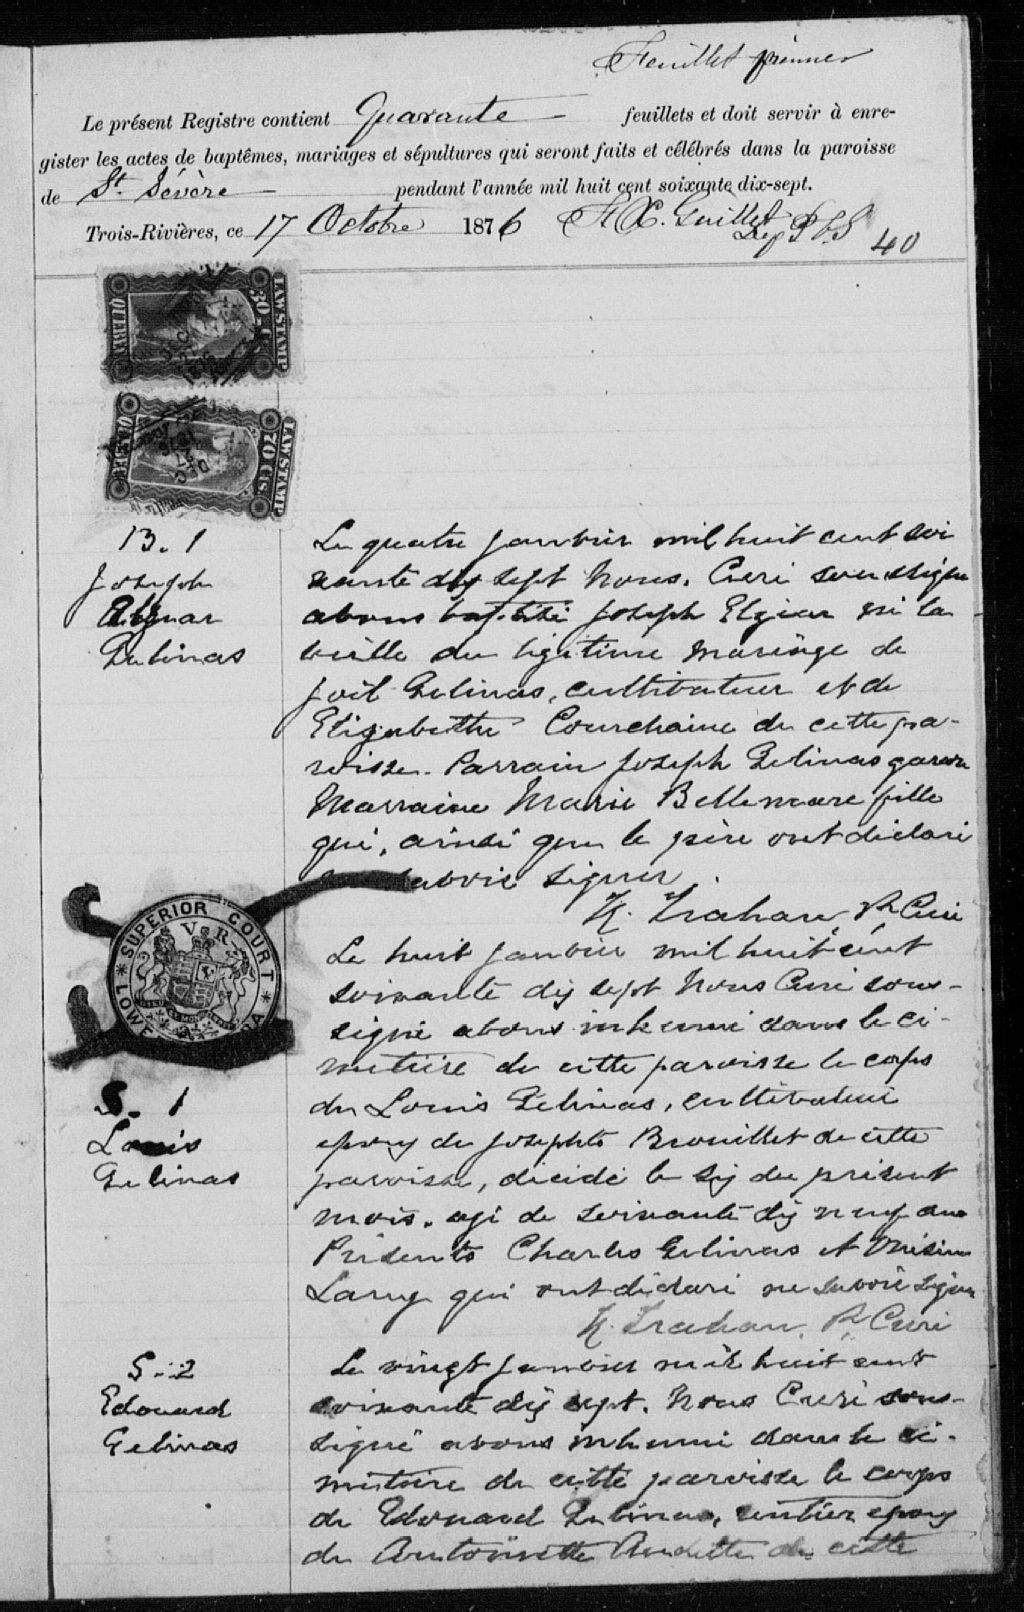 Feuillet premier
Le présent Registre contient Quarante feuillets et doit servir à enre-
gister les actes de baptêmes, mariages et sépultures qui seront faits et célébrés dans la paroisse
de St. Sévère pendant l'année mil huit cent soixante dix-sept.
Trois-Rivières, ce 17 Octobre 1876 F. X. Guillet
Dep P C S
40
LAW STAMP
30 CTS
QUEBEC
LAW STAMP
70 CTS
QUEBEC
B. 1
Joseph
Elzear
Gelinas
Le quatre janvier mil huit cent soi
xante dix sept Nous, Curé soussigné
avons baptisé Joseph Elzear né la
veille du légitime mariage de
Joël Gelinas, cultivateur et de
Elizabethe Courchaine de cette pa-
roisse. Parrain Joseph Gelinas garcon
Marraine Marie Bellemare fille
qui, ainsi que le père ont déclaré
savoir signer.
N. Trahan Ptr Curé
SUPERIOR COURT
LOWE
V R
S. 1
Louis
Gelinas
Le huit janvier mil huit cent
soixante dix sept Nous Curé sous-
signé avons inhumé dans le ci-
metière de cette paroisse le corps
de Louis Gélinas, cultivateur
epoux de Josephte Brouillet de cette
paroisse, décédé le six du présent
mois, agé de soixante dix neuf ans
Présents Charles Gelinas et
Lamy qui ont déclaré ne savoir signer
N. Trahan, Ptr Curé
S. 2
Edouard
Gelinas
Le vingt janvier mil huit cent
soixante dix sept, Nous Curé sous-
signé avons inhumé dans le ci-
metière de cette paroisse le corps
de Edouard Gelinas, rentier epoux
de Antoinette Audette de cette